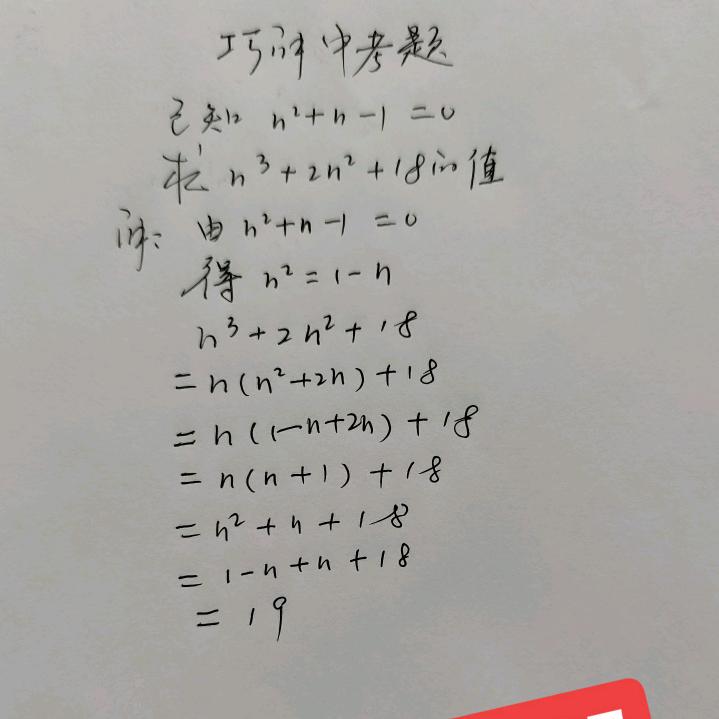 巧解中考题
已知 n²+n-1=0
求 n³+2n²+18的值
解: 由 n²+n-1=0
得 n²=1-n
n³+2n²+18
=n(n²+2n)+18
=n(1-n+2n)+18
=n(n+1)+18
=n²+n+18
=1-n+n+18
=19